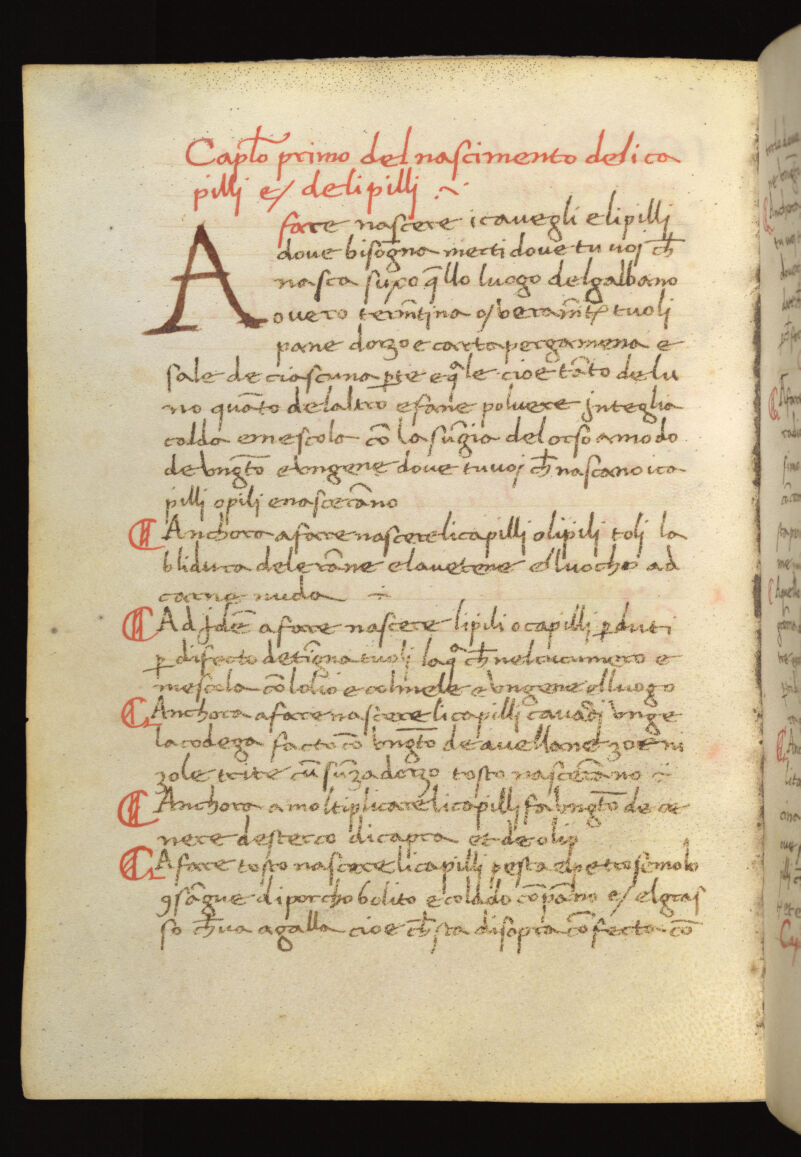 Capłto primo del nascimento deli ca
pilli e/ deli pilli
A fare nascere i cavegli e li pilli
dove bisogna metti dove tu voj ch̄
nasca supo q̄llo luogo del galbano
o vero term̄tina o/ veram̄t tuoli
pane dorzo e carta pergamena e
sale de ciascuna pte eq̄le cioe tāto de lu
no quāto delaltro e fane polvere j nteghia
calda e mescola cō la sūgia del orso a modo
de vngt̄o e vngene dove tu voj ch̄ nascano i ca
pilli o pili e nascerāno
Anchora a fare nascere li capilli o li pili toli la
blidura dele rāne e lavetene el luocho ad
carne nuda
Ad jdē a fare nascere li pili o capilli pduti
p difecto de tigna tuolj laq̄ ch̄ nel cucumero e
mescola cō lolio e col mele e vngene el luogo
Anchora a fare nascere li capilli cavadj vnge
la codega facto cō vngt̄o de avellane zoe ni
zole trite cū sūza dorzo tosto nascerāno
Anchora a moltiplicare li capilli fa vngt̄o de ce
nere de sterco di capra et de olio
A fare tosto nascere li capilli pesta el petrosemolo
9 sāgue di porcho bolito e colado cō pāno e/ el gras
so ch̄ va a galla cioe ch̄ sta di sopra cōfecta cō